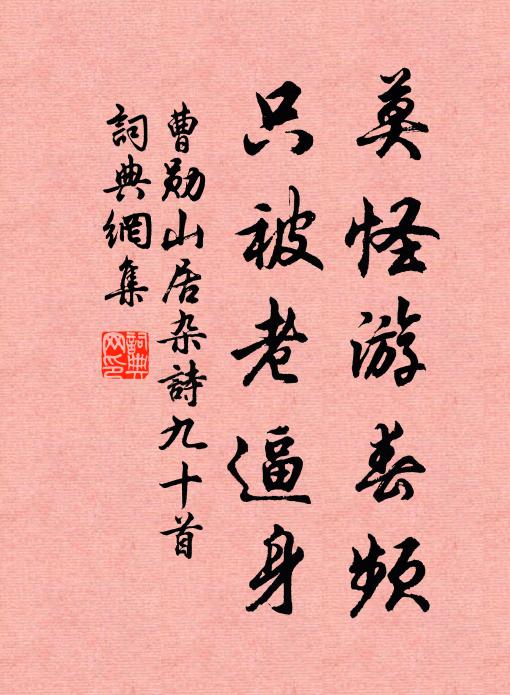 莫怪游春频
只被老逼身
曹勋山居杂詩九十首
詞典網集
詞典网印